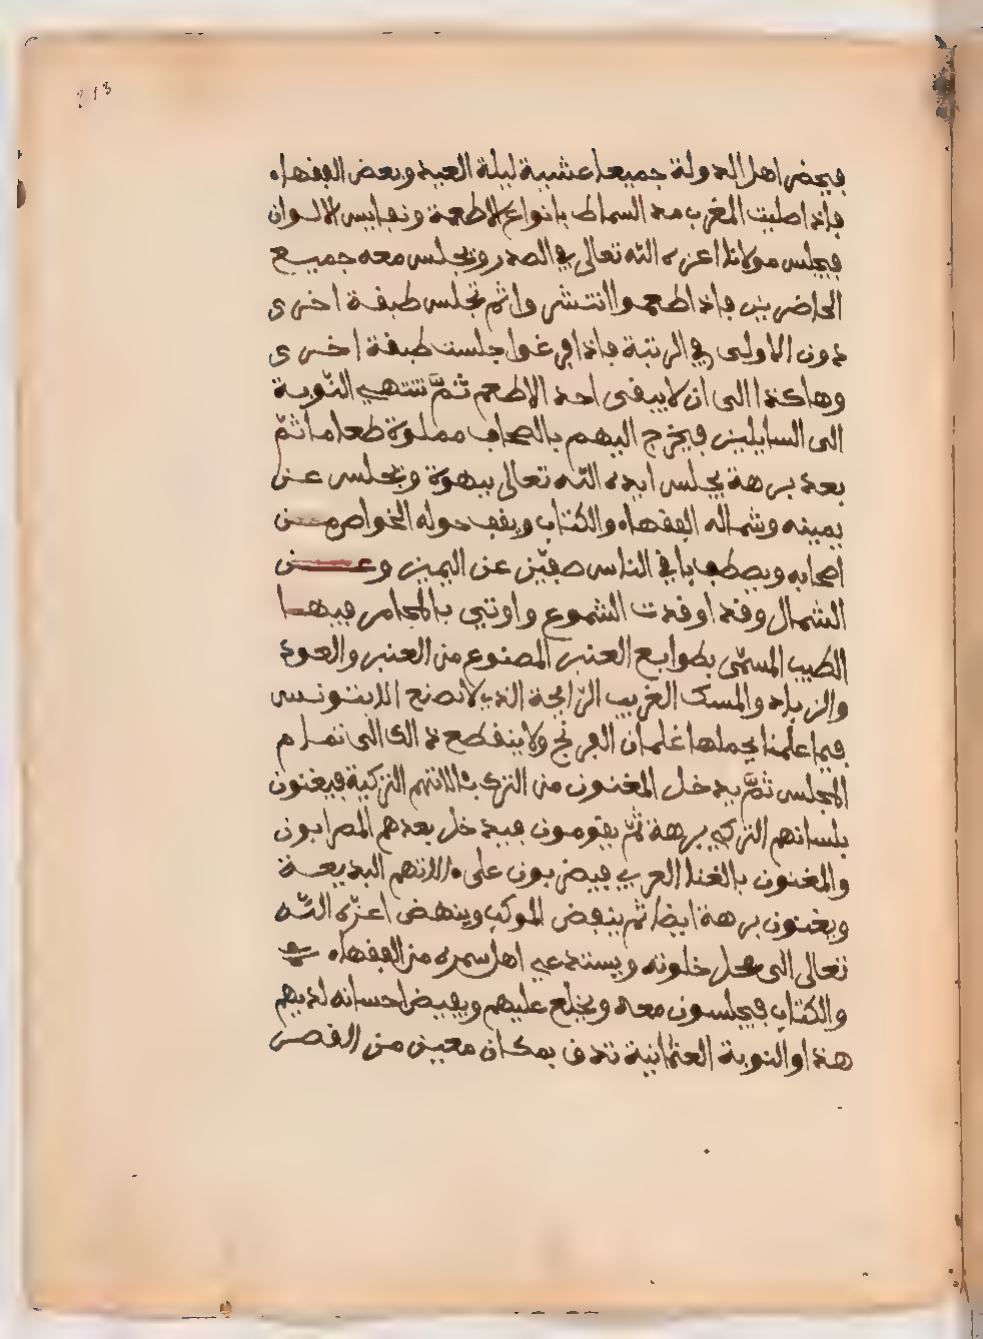 213
فيحضر اهل الدولة جميعا عشية ليلة العيد وبعض الفقهاء
فاذا صليت المغرب مد السماط بانواع الاطعمة ونفايس الالوان
فيجلس مولانا اعزه الله تعالى في الصدر ويجلس معه جميع
الحاضرين فاذا طعموا انتشروا ثم تجلس طبقة اخرى
دون الاولى في الرتبة فاذا فرغوا جلست طبقة اخرى
وهاكذا الى ان لا يبقى احد الا طعم ثمَّ تنتهي النّوبة
الى السايلين فيخرج اليهم بالصحاف مملوة طعاما ثمّ
بعد برهة يجلس ايده الله تعالى ببهوه ويجلس عن
يمينه وشماله الفقهاء والكتاب ويقف حوله الخواص من
اصحابه ويصطف باقي الناس صفّين عن اليمين وعن
الشمال وقد اوقدت الشموع واوتي بالمجامر فيها
الطيب المسمّى بطوابع العنبر المصنوع من العنبر والعود
والزباد والمسك الغريب الرّايحة الذي لا يصنع الا بتونس
فيما علمنا يحملها غلمان الفرنج ولا ينقطع ذالك الى تمام
المجلس ثمَّ يدخل المغنون من الترك بئالاتهم التركية فيغنون
بلسانهم التركي برهة ثمّ يقومون فيدخل بعدهم الضرابون
والمغنون بالغنا العربي فيضربون على ءالاتهم البديعة
ويغنون برهة ايضا ثم ينفض الموكب وينهض اعزّه اللّه
تعالى الى محل خلوته ويستدعي اهل سمره من الفقهاء
والكتاب فيجلسون معه ويخلع عليهم ويفيض احسانه لديهم
هذا والنوبة العثمانية تدق بمكان معين من القصر